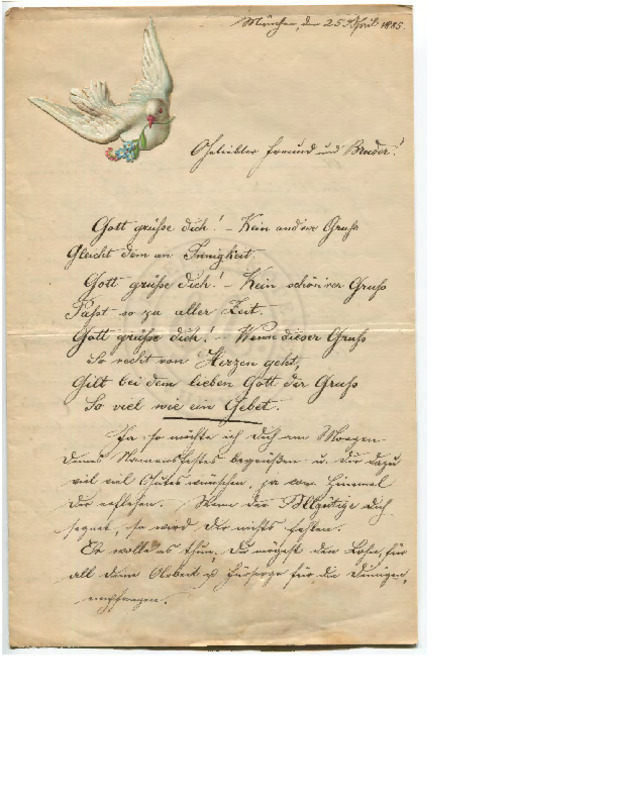 München, den 25 April 1885.
Geliebter Freund und Bruder!
Gott grüße dich! – Kein andrer Gruß
Gleicht dem an Innigkeit.
Gott grüße dich! – Kein schön'rer Gruß
Paßt so zu aller Zeit.
Gott grüße dich! – Wenn dieser Gruß
So recht von Herzen geht,
Gilt bei dem lieben Gott der Gruß
So viel wie ein Gebet.
Ja so möchte ich Dich am Morgen
Deines Namensfestes begrüßen u. Dir dazu
viel viel Gutes wünschen, ja vom Himmel
Dir erflehen. Wenn der Allgütige Dich
segnet, so wird Dir nichts fehlen.
Er wolle es thun, Du mögest den Lohn, für
all Deine Arbeit u Fürsorge für die Deinigen,
empfangen.